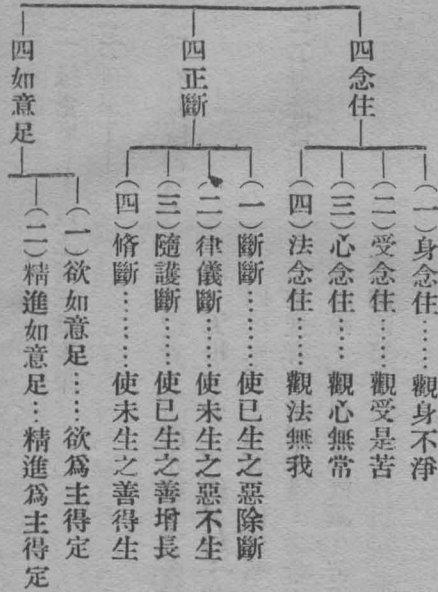 四念住
(一)身念住……觀身不淨
(二)受念住……觀受是苦
(三)心念住……觀心無常
(四)法念住……觀法無我
四正斷
(一)斷斷………使已生之惡除斷
(二)律儀斷……使未生之惡不生
(三)隨護斷……使已生之善增長
(四)脩斷………使未生之善得生
四如意足
(一)欲如意足……欲爲主得定
(二)精進如意足…精進爲主得定